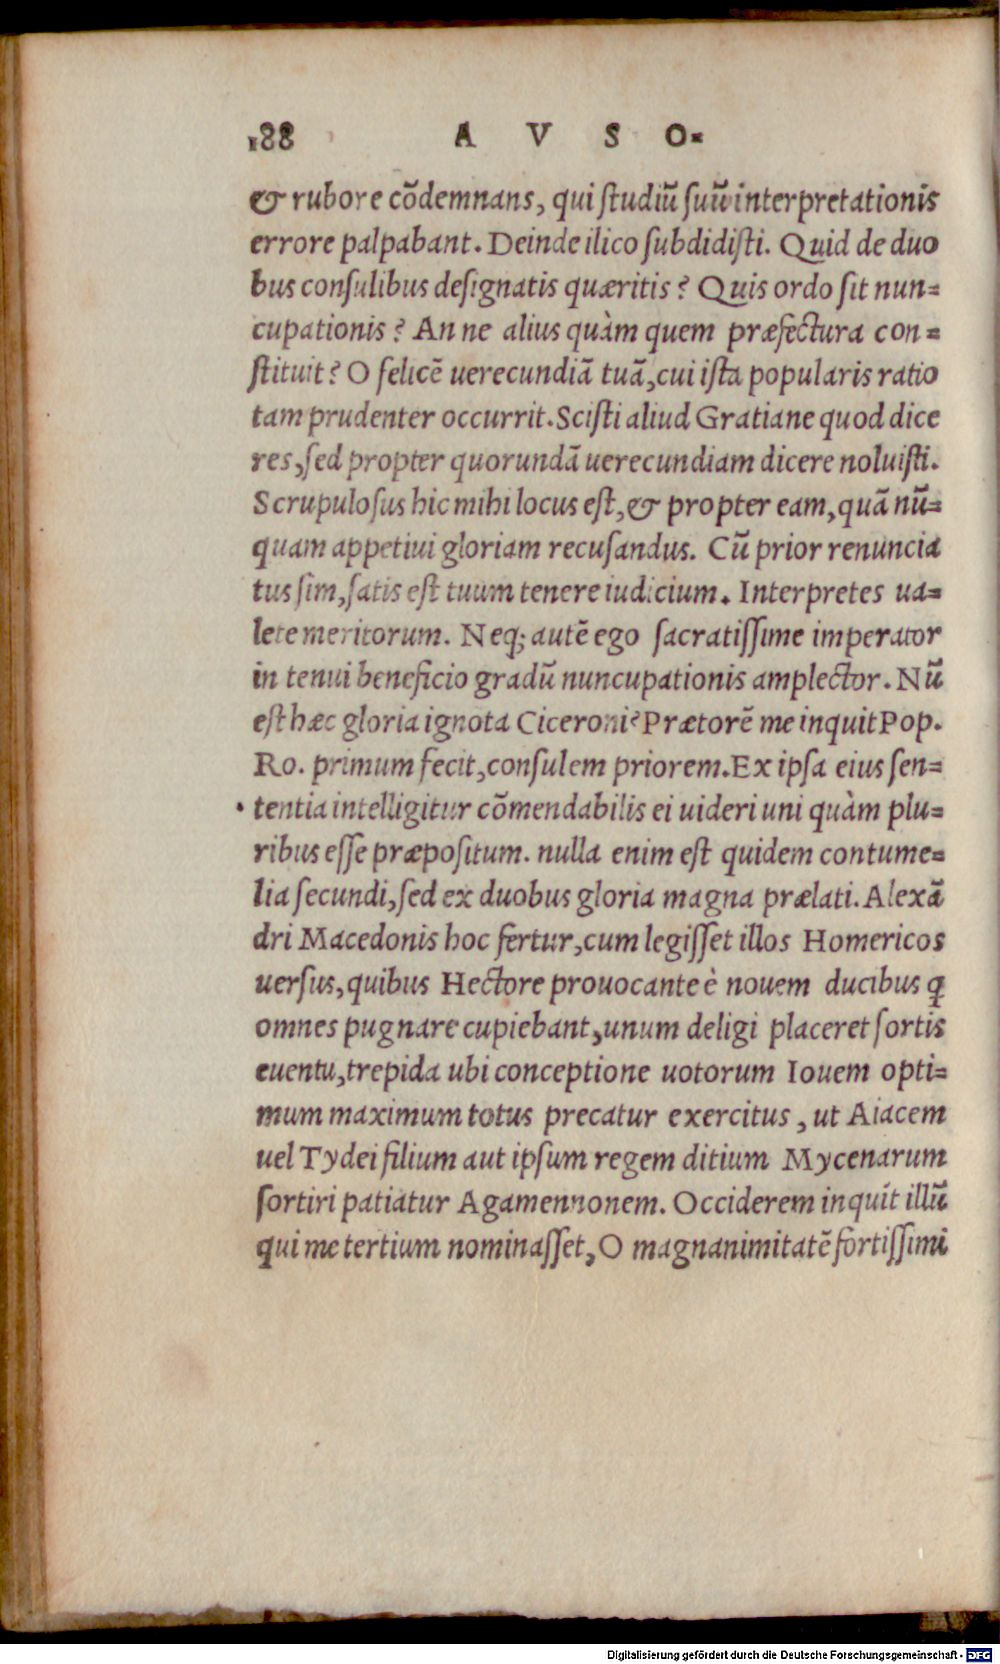 188 A V S O=
& rubore cõdemnans, qui ſtudiũ ſuũ interpretationis
errore palpabant. Deinde ilico ſubdidiſti. Quid de duo
bus conſulibus deſignatis quæritis? Quis ordo ſit nun=
cupationis? An ne alius quàm quem præfectura con=
ſtituit? O felicẽ uerecundiã tuã, cui iſta popularis ratio
tam prudenter occurrit. Sciſti aliud Gratiane quod dice
res, ſed propter quorundã uerecundiam dicere noluiſti.
Scrupuloſus hic mihi locus eſt, & propter eam, quã nũ=
quam appetiui gloriam recuſandus. Cũ prior renuncia
tus ſim, ſatis eſt tuum tenere iudicium. Interpretes ua=
lete meritorum. Neq; autẽ ego ſacratiſſime imperator
in tenui beneficio gradũ nuncupationis amplector. Nũ
eſt hæc gloria ignota Ciceroni? Prætorẽ me inquit Pop.
Ro. primum fecit, conſulem priorem. Ex ipſa eius ſen=
tentia intelligitur cõmendabilis ei uideri uni quàm plu=
ribus eſſe præpoſitum. nulla enim eſt quidem contume=
lia ſecundi, ſed ex duobus gloria magna prælati. Alexã
dri Macedonis hoc fertur, cum legiſſet illos Homericos
uerſus, quibus Hectore prouocante è nouem ducibus ꝗ
omnes pugnare cupiebant, unum deligi placeret ſortis
euentu, trepida ubi conceptione uotorum Iouem opti=
mum maximum totus precatur exercitus, ut Aiacem
uel Tydei filium aut ipſum regem ditium Mycenarum
ſortiri patiatur Agamennonem. Occiderem inquit illũ
qui me tertium nominaſſet, O magnanimitatẽ fortiſſimi
Digitalisierung gefördert durch die Deutsche Forschungsgemeinschaft - DFG